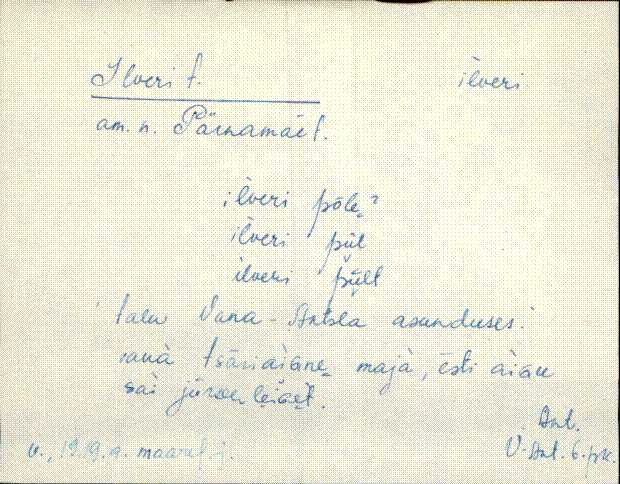 Ilveri t. ilveri
am. n. Pärnamäe t.
ilveri põle?
ilveri pül
ilveri pült
talu Vana-Antsla asunduses.
vana tsäriaigne maja, ësti aigu
sai
Ant.
V. Ant. 6. pk.
v., 1919. a. maaref. j.